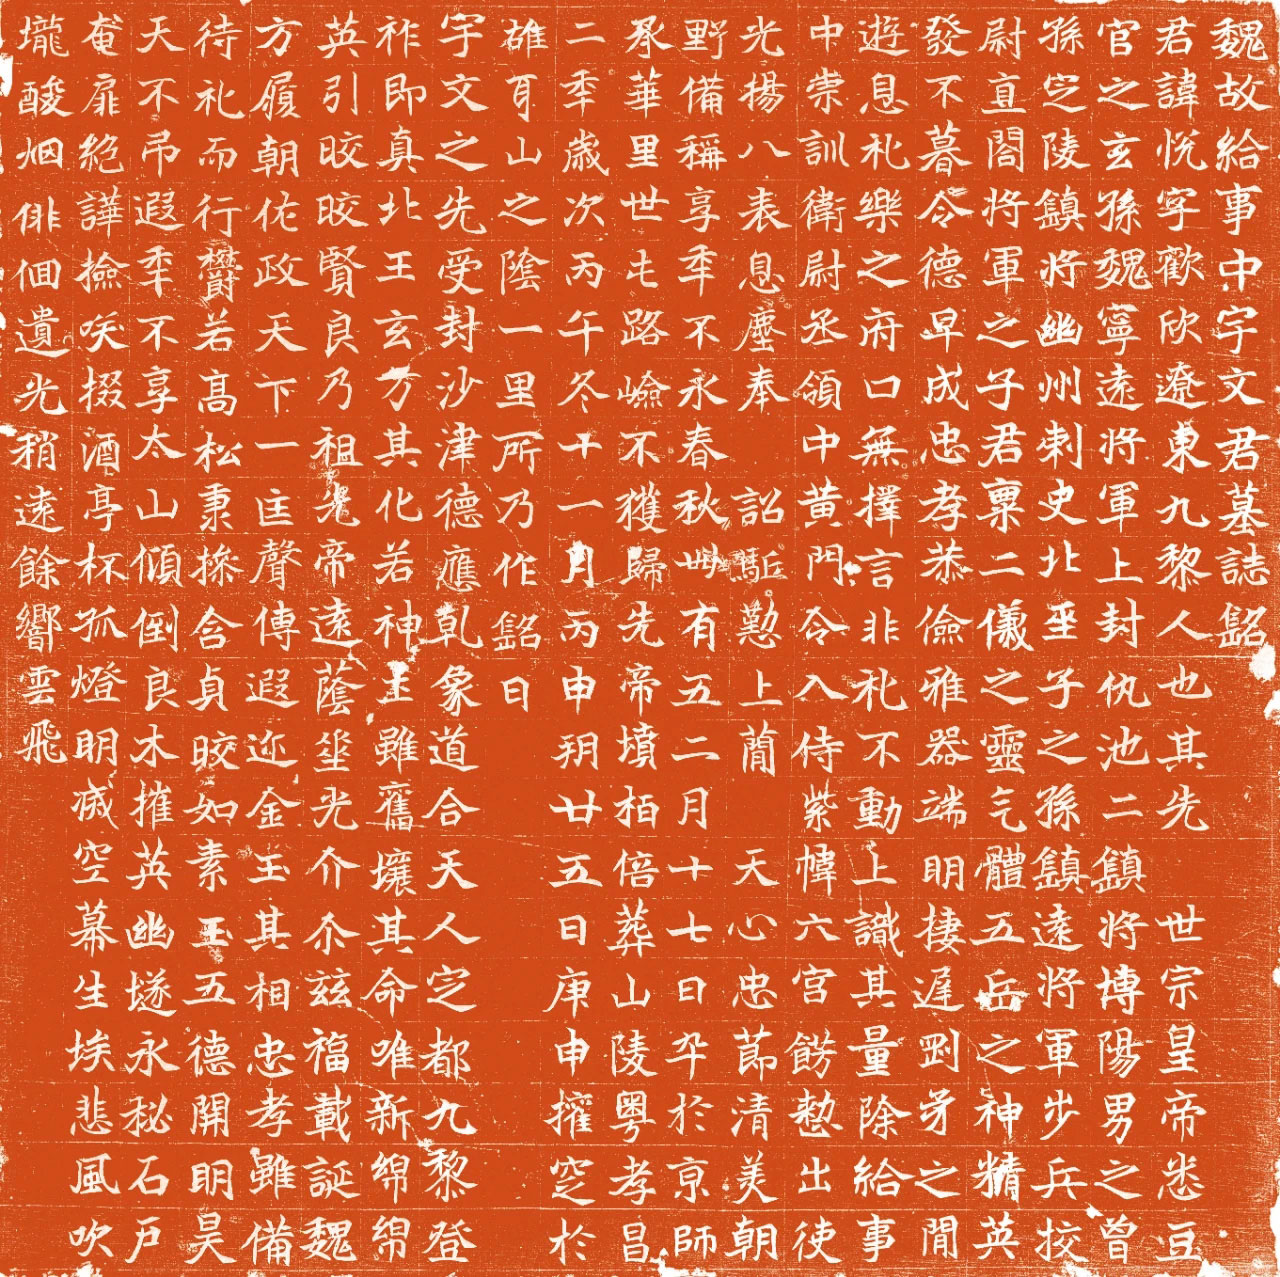 魏故給事中宇文君墓誌銘
君諱悅字歡欣遼東九黎人也其先 世宗皇帝悉亘
官之玄孫魏寧遠將軍上封仇池二鎮將博陽男之曾
孫定陵鎮將幽州刺史北平子之孫鎮遠將軍步兵挍
尉直閤將軍之子君稟二儀之靈氣體五岳之神精英
發不暮令德早成忠孝恭儉雅器端明棲遲剛矛之間
遊息礼樂之府口無擇言非礼不動上識其量除給事
中崇訓衛尉丞領中黃門令入侍紫幃六宮餝懃出使
光揚八表息塵奉 詔駈懃上蕳 天心忠莭清美朝
野備稱享秊不永春秋卌有五二月十七日卒於京師
承華里世屯路嶮不獲歸先帝墳栢倍葬山陵粵孝昌
二秊歲次丙午冬十一月丙申朔廿五日庚申窆於
雄耳山之陰一里所乃作銘曰
宇文之先受封沙津德應乾象道合天人定都九黎登
祚即真北王玄方其化若神主雖舊壤其命唯新綿綿
英引晈晈賢良乃祖先帝遠蔭垂光介介茲福載誕魏
方履朝佐政天下一匡聲傳遐迩金玉其相忠孝雖備
待礼而行欝若高松秉操含貞晈如素玉五德開明昊
天不弔遐秊不享太山傾倒良木摧英幽隧永秘石戶
奄扉絕譁撿咲掇酒亭杯孤燈明滅空幕生埃悲風吹
壠酸烟俳佪遺光稍遠餘響雲飛